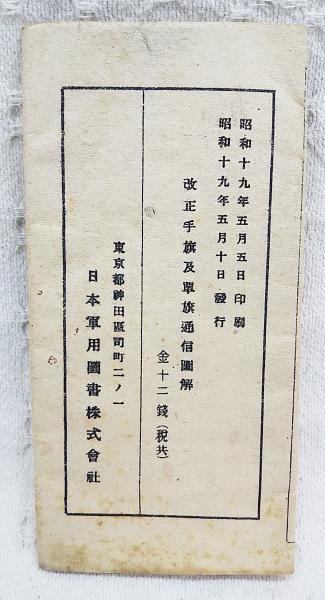 昭和十九年五月五日印刷
昭和十九年五月十日發行
改正手旗及單旗通信圖解
金十二錢(稅共)
東京都神田區司町二ノ一
日本軍用圖書株式會社